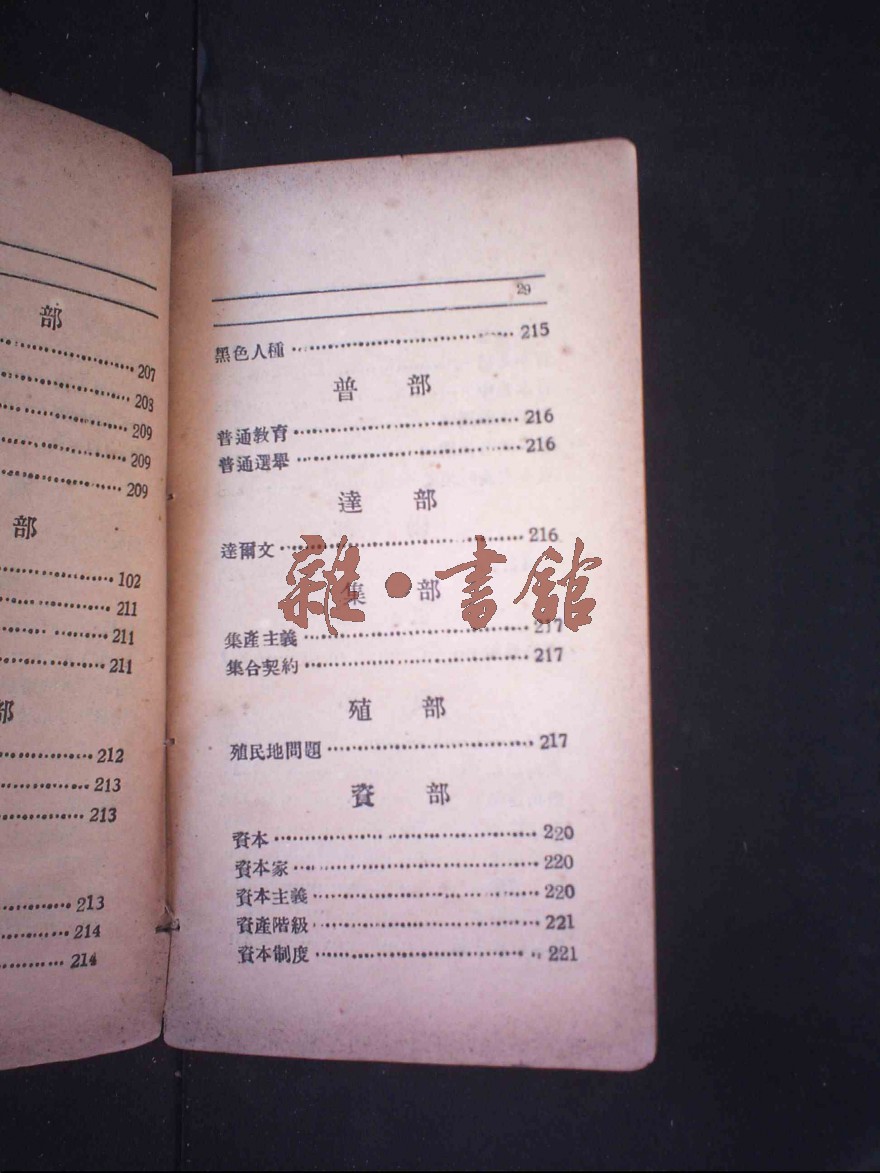 部
207
208
209
209
209
部
102
211
211
211
部
212
213
213
213
214
214
29
黑色人種 215
普 部
普通教育 216
普通選舉 216
達 部
達爾文 216
集 部
集產主義 217
集合契約 217
殖 部
殖民地問題 217
資 部
資本 220
資本家 220
資本主義 220
資產階級 221
資本制度 221
雜·書館